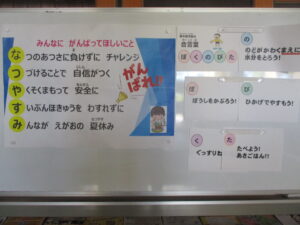 みんなに がんばってほしいこと
なつのあつさに負けずに チャレンジ
つづけることで 自信がつく
やくそくまもって 安全に
すいぶんほきゅうを わすれずに
みんなが えがおの 夏休み
がんばれ!!
合言葉
ぼくのぴた
の
のどがかわくまえに
水分をとろう!
ぼ
ぼうしをかぶろう!
ぴ
ひかげでやすもう!
く
ぐっすりね
た
たべよう!
あさごはん!!